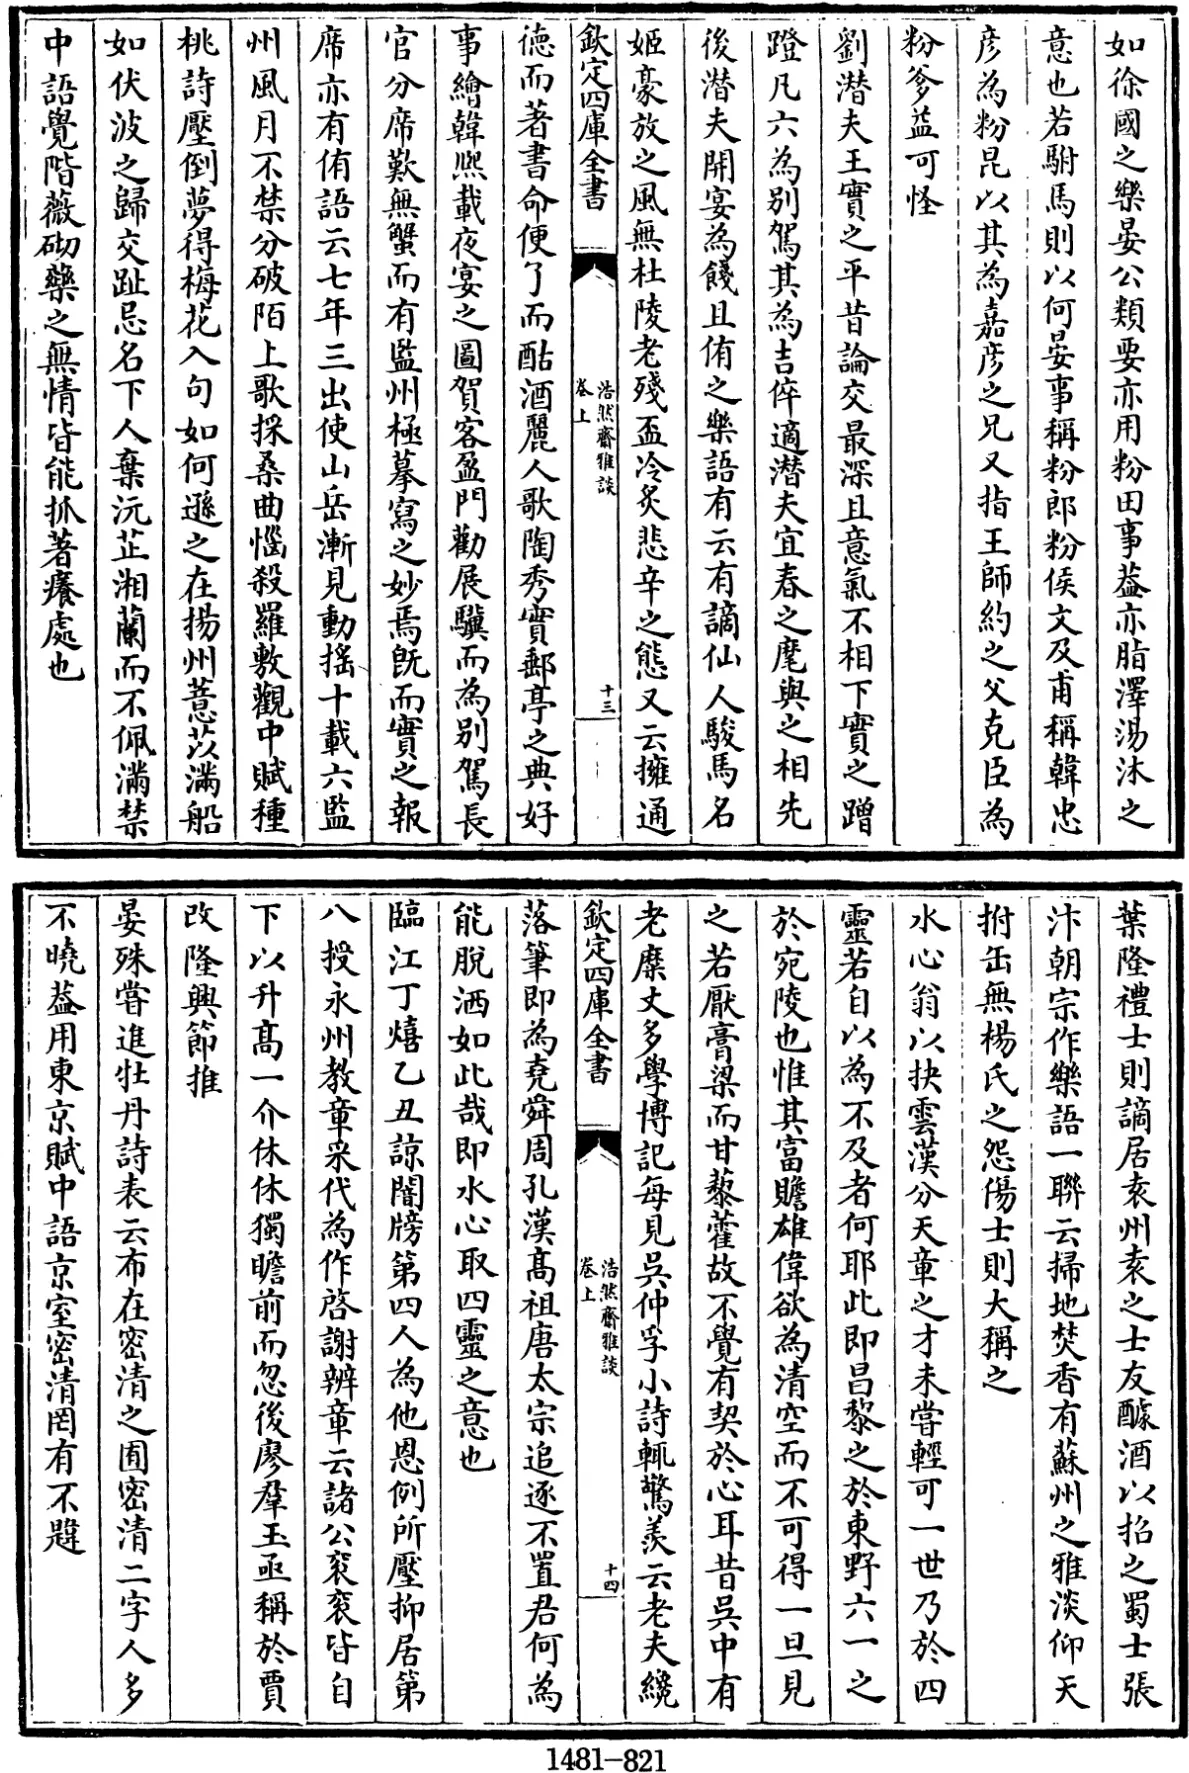 如徐國之樂晏公類要亦用粉田事葢亦脂澤湯沐之
意也若駙馬則以何晏事稱粉郎粉侯文及甫稱韓忠
彦為粉昆以其為嘉彦之兄又指王師約之父克臣為
粉爹益可怪
劉潛夫王實之平昔論交最深且意氣不相下實之蹭
蹬凡六為别駕其為吉倅適潛夫宜春之麾與之相先
後潛夫開宴為餞且侑之樂語有云有謫仙人駿馬名
姬豪放之風無杜陵老殘盃冷炙悲辛之態又云擁通
德而著書命便了而酤酒麗人歌陶秀實郵亭之典好
事繪韓熙載夜宴之圖賀客盈門勸展驥而為别駕長
官分席歎無蟹而有監州極摹寫之妙焉既而實之報
席亦有侑語云七年三出使山岳漸見動摇十載六監
州風月不禁分破陌上歌採桑曲惱殺羅敷觀中賦種
桃詩壓倒夢得梅花入句如何遜之在揚州薏苡滿船
如伏波之歸交趾忌名下人棄沅芷湘蘭而不佩滿禁
中語覺階薇砌藥之無情皆能抓著癢處也
欽定四庫全書
浩然齋雅談
卷上
十三
葉隆禮士則謫居袁州袁之士友醵酒以招之蜀士張
汴朝宗作樂語一聯云掃地焚香有蘇州之雅淡仰天
拊缶無楊氏之怨傷士則大稱之
水心翁以抉雲漢分天章之才未嘗輕可一世乃於四
靈若自以為不及者何耶此即昌黎之於東野六一之
於宛陵也惟其富贍雄偉欲為清空而不可得一旦見
之若厭膏粱而甘藜藿故不覺有契於心耳昔吳中有
老糜丈多學博記每見吳仲孚小詩輒驚羨云老夫纔
落筆即為堯舜周孔漢髙祖唐太宗追逐不置君何為
能脱洒如此哉即水心取四靈之意也
臨江丁熺乙丑諒闇牓第四人為他恩例所壓抑居第
八授永州教章采代為作啓謝辨章云諸公衮衮皆自
下以升髙一介休休獨瞻前而忽後廖羣玉亟稱於賈
改隆興節推
晏殊嘗進牡丹詩表云布在密清之囿密清二字人多
不曉葢用東京賦中語京室密清罔有不韙
欽定四庫全書
浩然齋雅談
卷上
十四
1481-821